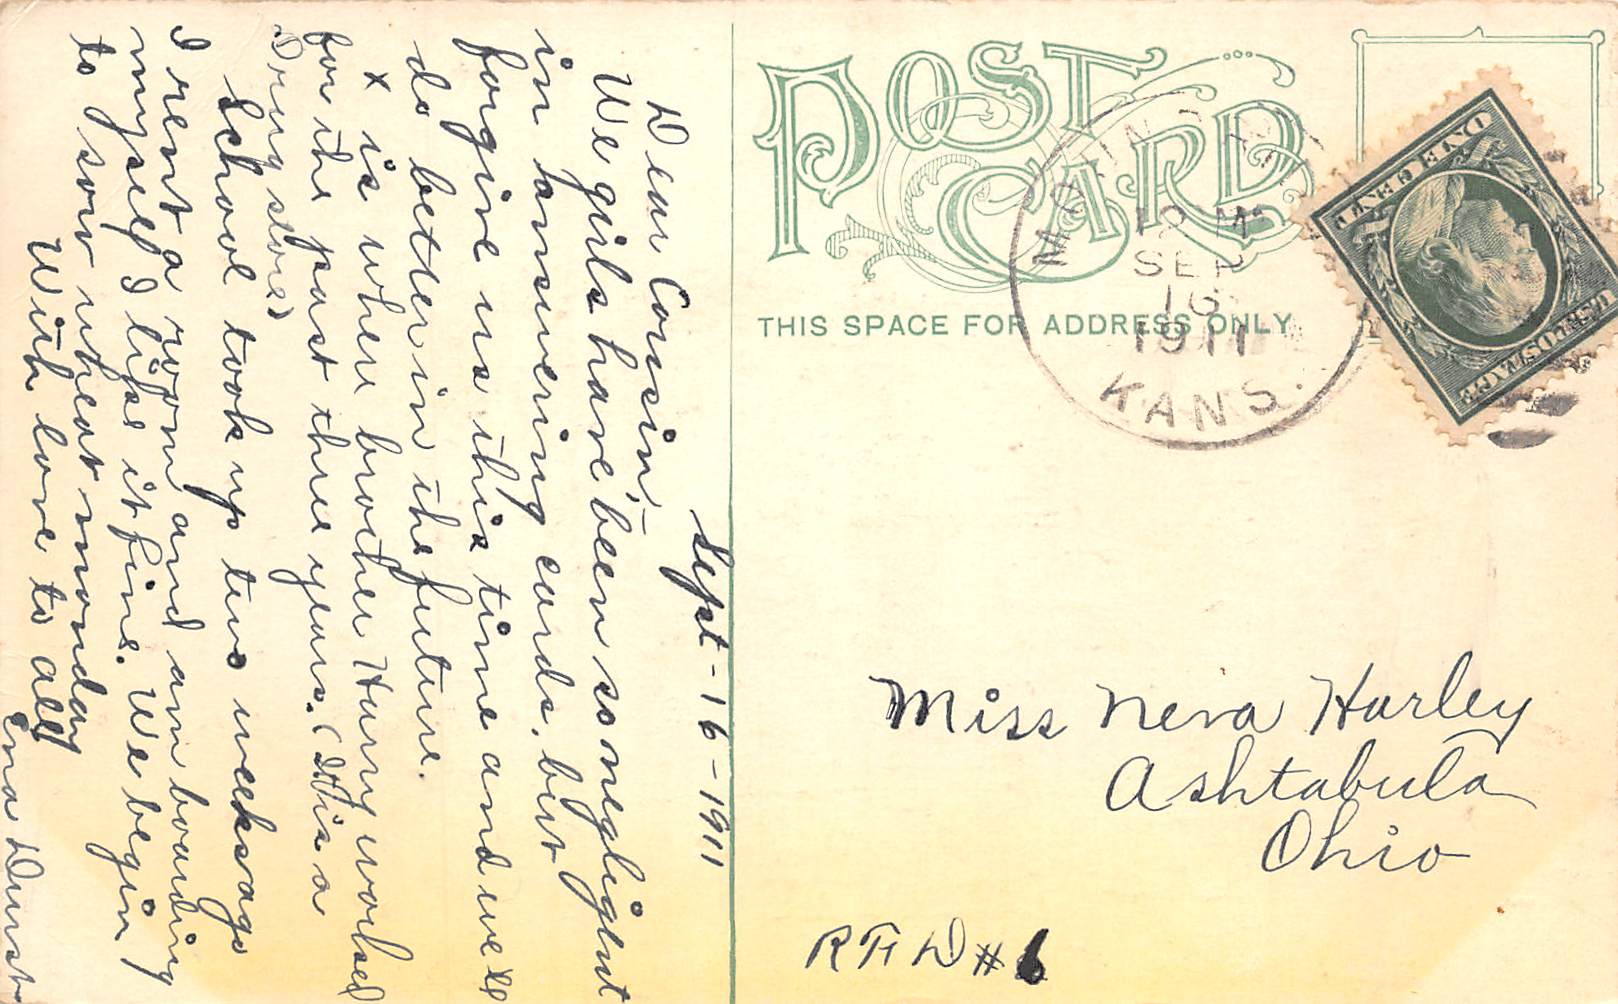 Sept - 16 - 1911
Dear Cousin; -
We girls have been so negligent
in answering cards. but
forgive us this time and we'll
do better in the future.
x is where brother Harry worked
for the past three years. (It is a
Drug store)
School took up two weeks ago
I rent a room and am boarding
myself I like it fine. We begin
to sow wheat monday
With love to all
Ina Durst
POST CARD
THIS SPACE FOR ADDRESS ONLY
SEP
16
1911
KANS.
ONE CENT
U.S. POSTAGE
Miss Neva Harley
Ashtabula
Ohio
RFD #6